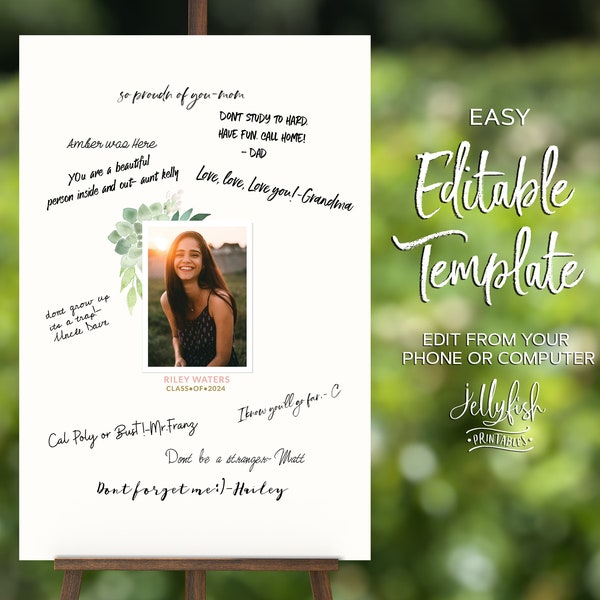 so proudn of you-mom
DONT STUDY TO HARD.
HAVE FUN. CALL HOME!
- DAD
Amber was Here
You are a beautiful
person inside and out- aunt kelly
Love, love, Love you!-Grandma
dont grow up
its a trap!-
Uncle Dave
RILEY WATERS
CLASS•OF•2024
I know you'll go far.- C
Cal Poly or Bust!-Mr.Franz
Dont be a stranger- Matt
Dont forget me:)-Hailey
EASY
Editable
Template
EDIT FROM YOUR
PHONE OR COMPUTER
Jellyfish
PRINTABLES